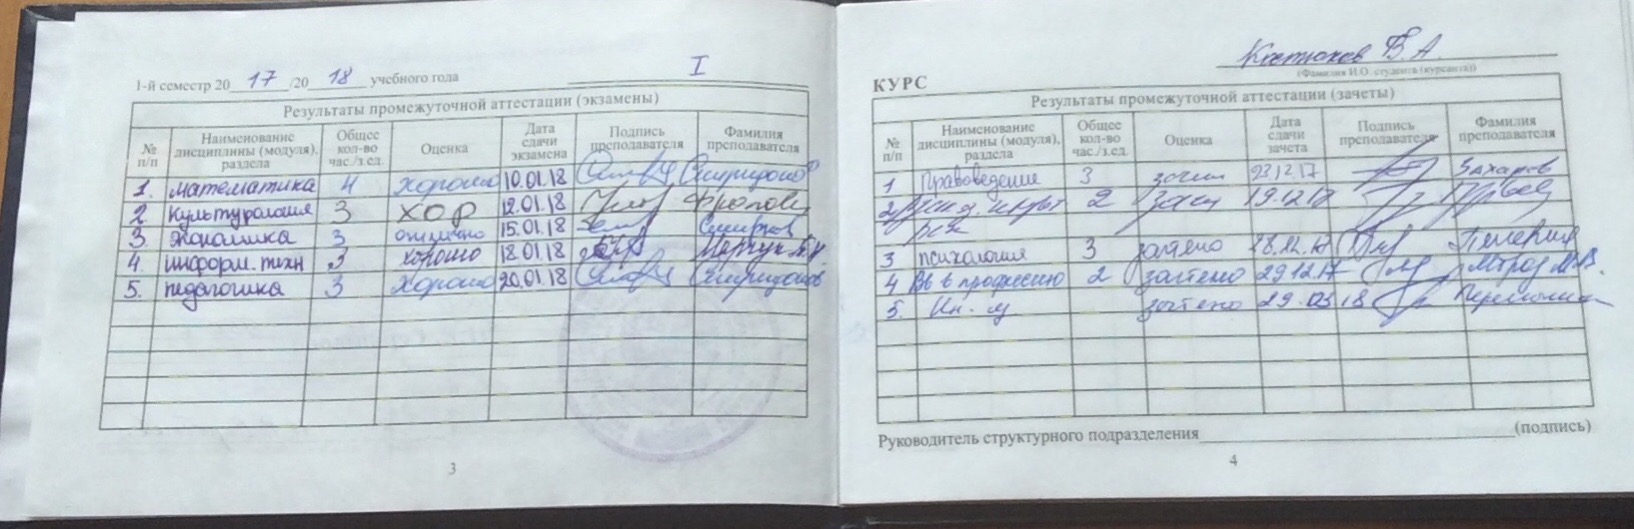 1-й семестр 20 17 /20 18 учебного года I
Результаты промежуточной аттестации (экзамены)
№ п/п Наименование дисциплины (модуля), раздела Общее кол-во час./з.ед. Оценка Дата сдачи экзамена Подпись преподавателя Фамилия преподавателя
1. математика 4 хорошо 10.01.18 Спиридонов
2. Культурология 3 ХОР 12.01.18
3. Экономика 3 отлично 15.01.18 Смирнов
4. информ. техн 3 хорошо 18.01.18
5. педагогика 3 хорошо 20.01.18 Спиридонов
3
КУРС
(Фамилия И.О. студента (курсанта))
Результаты промежуточной аттестации (зачеты)
№ п/п Наименование дисциплины (модуля), раздела Общее кол-во час./з.ед. Оценка Дата сдачи зачета Подпись преподавателя Фамилия преподавателя
1 Правоведение 3 зачт 23.12.17 Захаров
2 2 зачт 19.12.17
3 психология 3 зачтено 28.12.17
4 Вв в профессию 2 зачтено 29.12.17 Мороз М.В.
5. Ин. яз зачтено 29.03.18
Руководитель структурного подразделения (подпись)
4